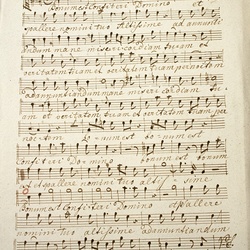 Bonum est Confiteri Domino et
psallere nomini tuo altissime ad annunti
andum mane misericordiam tuam et
veritatem tuam et veritatem tuam per noctem
ad annuntiandum mane misericordiam tu
am et veritatem tuam et veritatem tuam per
noctem bonum est bonum est
Confiteri Domino bonum est
et psallere nomini tuo altissime
Bonum est Confiteri Domino et psallere
nomini tuo altissime adnuntiandum